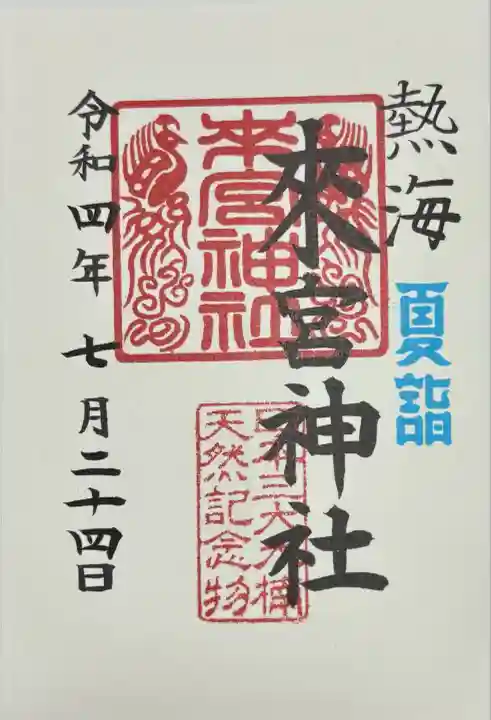 熱海
夏詣
來宮神社
来宮神社
日本三大大楠
天然記念物
令和四年七月二十四日